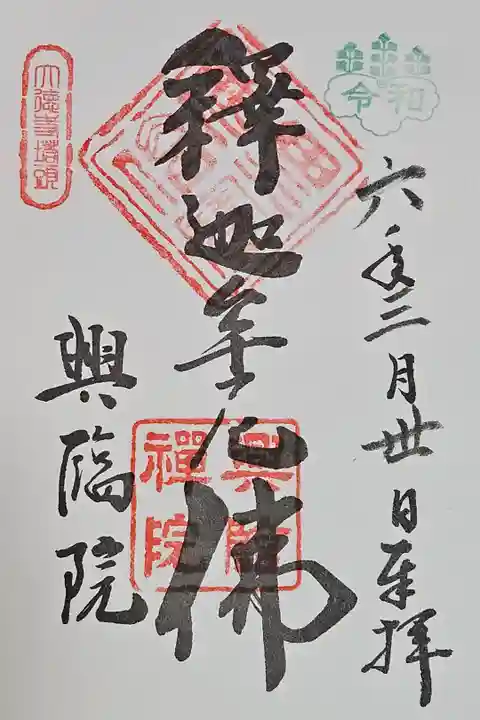 令和
六年三月丗日奉拝
釋迦牟尼佛
興臨
禪院
大徳寺塔頭
興臨院